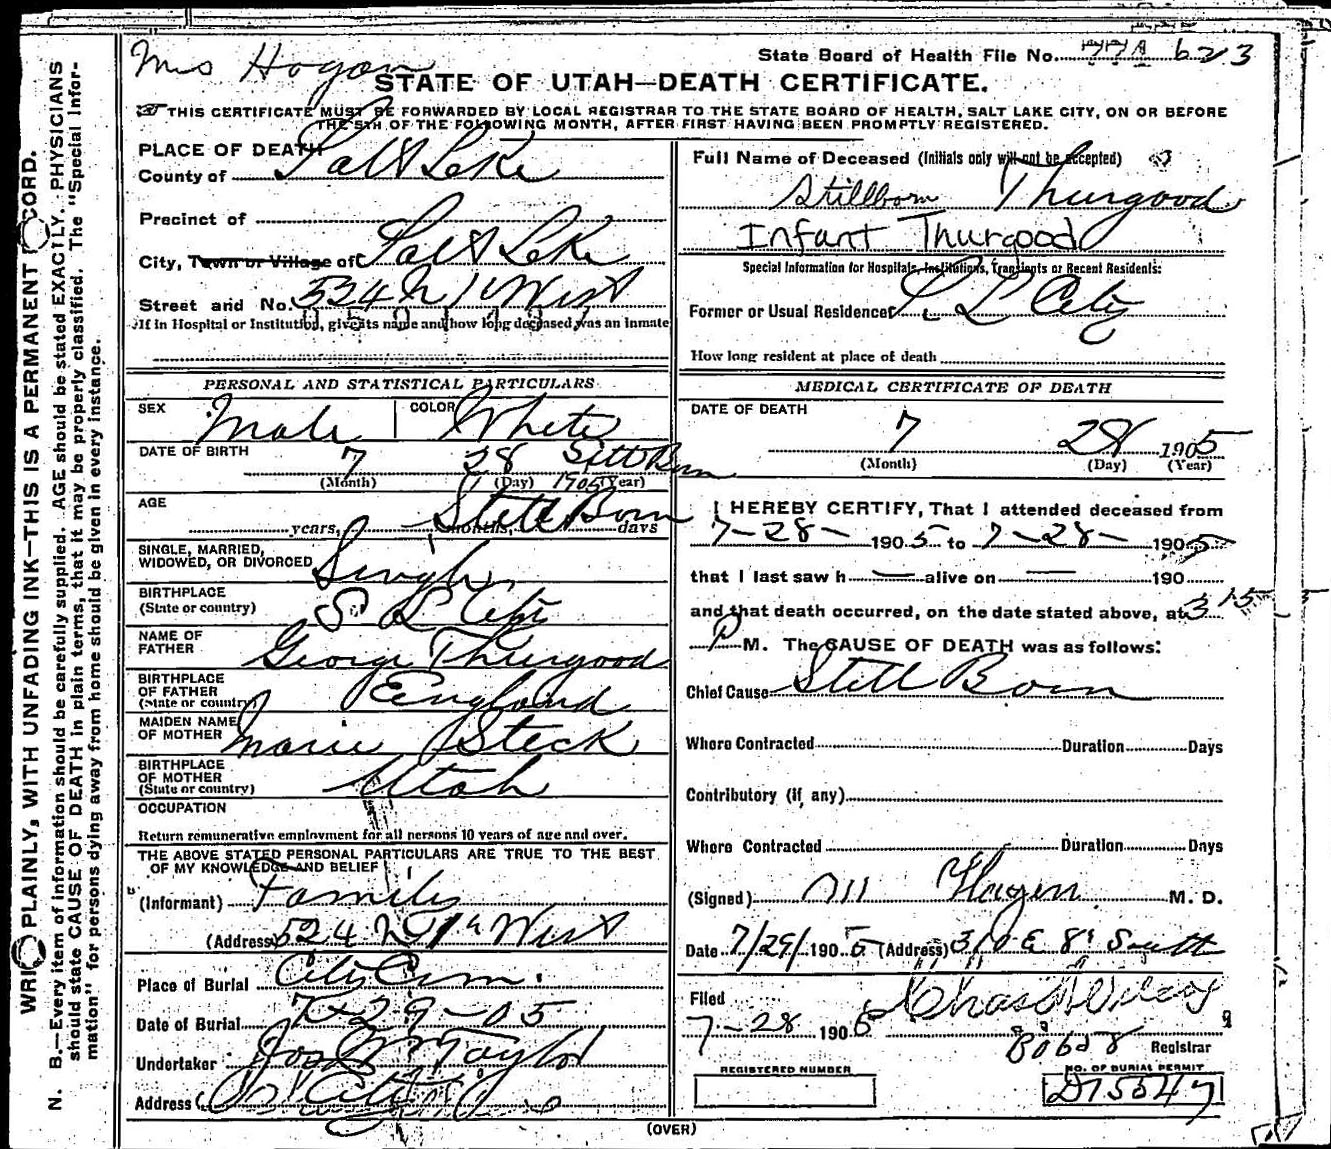 Mrs Hogan
State Board of Health File No. 623
STATE OF UTAH—DEATH CERTIFICATE.
THIS CERTIFICATE MUST BE FORWARDED BY LOCAL REGISTRAR TO THE STATE BOARD OF HEALTH, SALT LAKE CITY, ON OR BEFORE
THE 5TH OF THE FOLLOWING MONTH, AFTER FIRST HAVING BEEN PROMPTLY REGISTERED.
WRITE PLAINLY, WITH UNFADING INK—THIS IS A PERMANENT RECORD.
N. B.—Every item of information should be carefully supplied. AGE should be stated EXACTLY. PHYSICIANS
should state CAUSE OF DEATH in plain terms, that it may be properly classified. The "Special Infor-
mation" for persons dying away from home should be given in every instance.
PLACE OF DEATH
County of Salt Lake
Precinct of
City, Town or Village of Salt Lake
Street and No. 534 N 1st West
If in Hospital or Institution, give its name and how long deceased was an inmate
PERSONAL AND STATISTICAL PARTICULARS
SEX Male COLOR White
DATE OF BIRTH 7 28 Still Born
(Month) (Day) 1905 (Year)
AGE Still Born
years, months, days
SINGLE, MARRIED,
WIDOWED, OR DIVORCED Single
BIRTHPLACE
(State or country) S L City
NAME OF
FATHER George Thurgood
BIRTHPLACE
OF FATHER
(State or country) England
MAIDEN NAME
OF MOTHER Marie Steck
BIRTHPLACE
OF MOTHER
(State or country) Utah
OCCUPATION
Return remunerative employment for all persons 10 years of age and over.
THE ABOVE STATED PERSONAL PARTICULARS ARE TRUE TO THE BEST
OF MY KNOWLEDGE AND BELIEF
(Informant) Family
(Address) 524 N 1st West
Place of Burial City Cem.
Date of Burial 7-29-05
Undertaker Jos Wm Taylor
Address City
Full Name of Deceased (Initials only will not be accepted)
Stillborn Thurgood
Infant Thurgood
Special Information for Hospitals, Institutions, Transients or Recent Residents:
Former or Usual Residence S L City
How long resident at place of death
MEDICAL CERTIFICATE OF DEATH
DATE OF DEATH
7 28 1905
(Month) (Day) (Year)
I HEREBY CERTIFY, That I attended deceased from
7-28- 1905 to 7-28- 1905
that I last saw h — alive on — 190
and that death occurred, on the date stated above, at 3 15
P M. The CAUSE OF DEATH was as follows:
Chief Cause Still Born
Where Contracted Duration Days
Contributory (if any)
Where Contracted Duration Days
(Signed) M. D.
Date 7/29/ 1905 (Address) 310 E 8" South
Filed
7-28 1905 Chas Wilcox
80628 Registrar
REGISTERED NUMBER
NO. OF BURIAL PERMIT
D15547
(OVER)